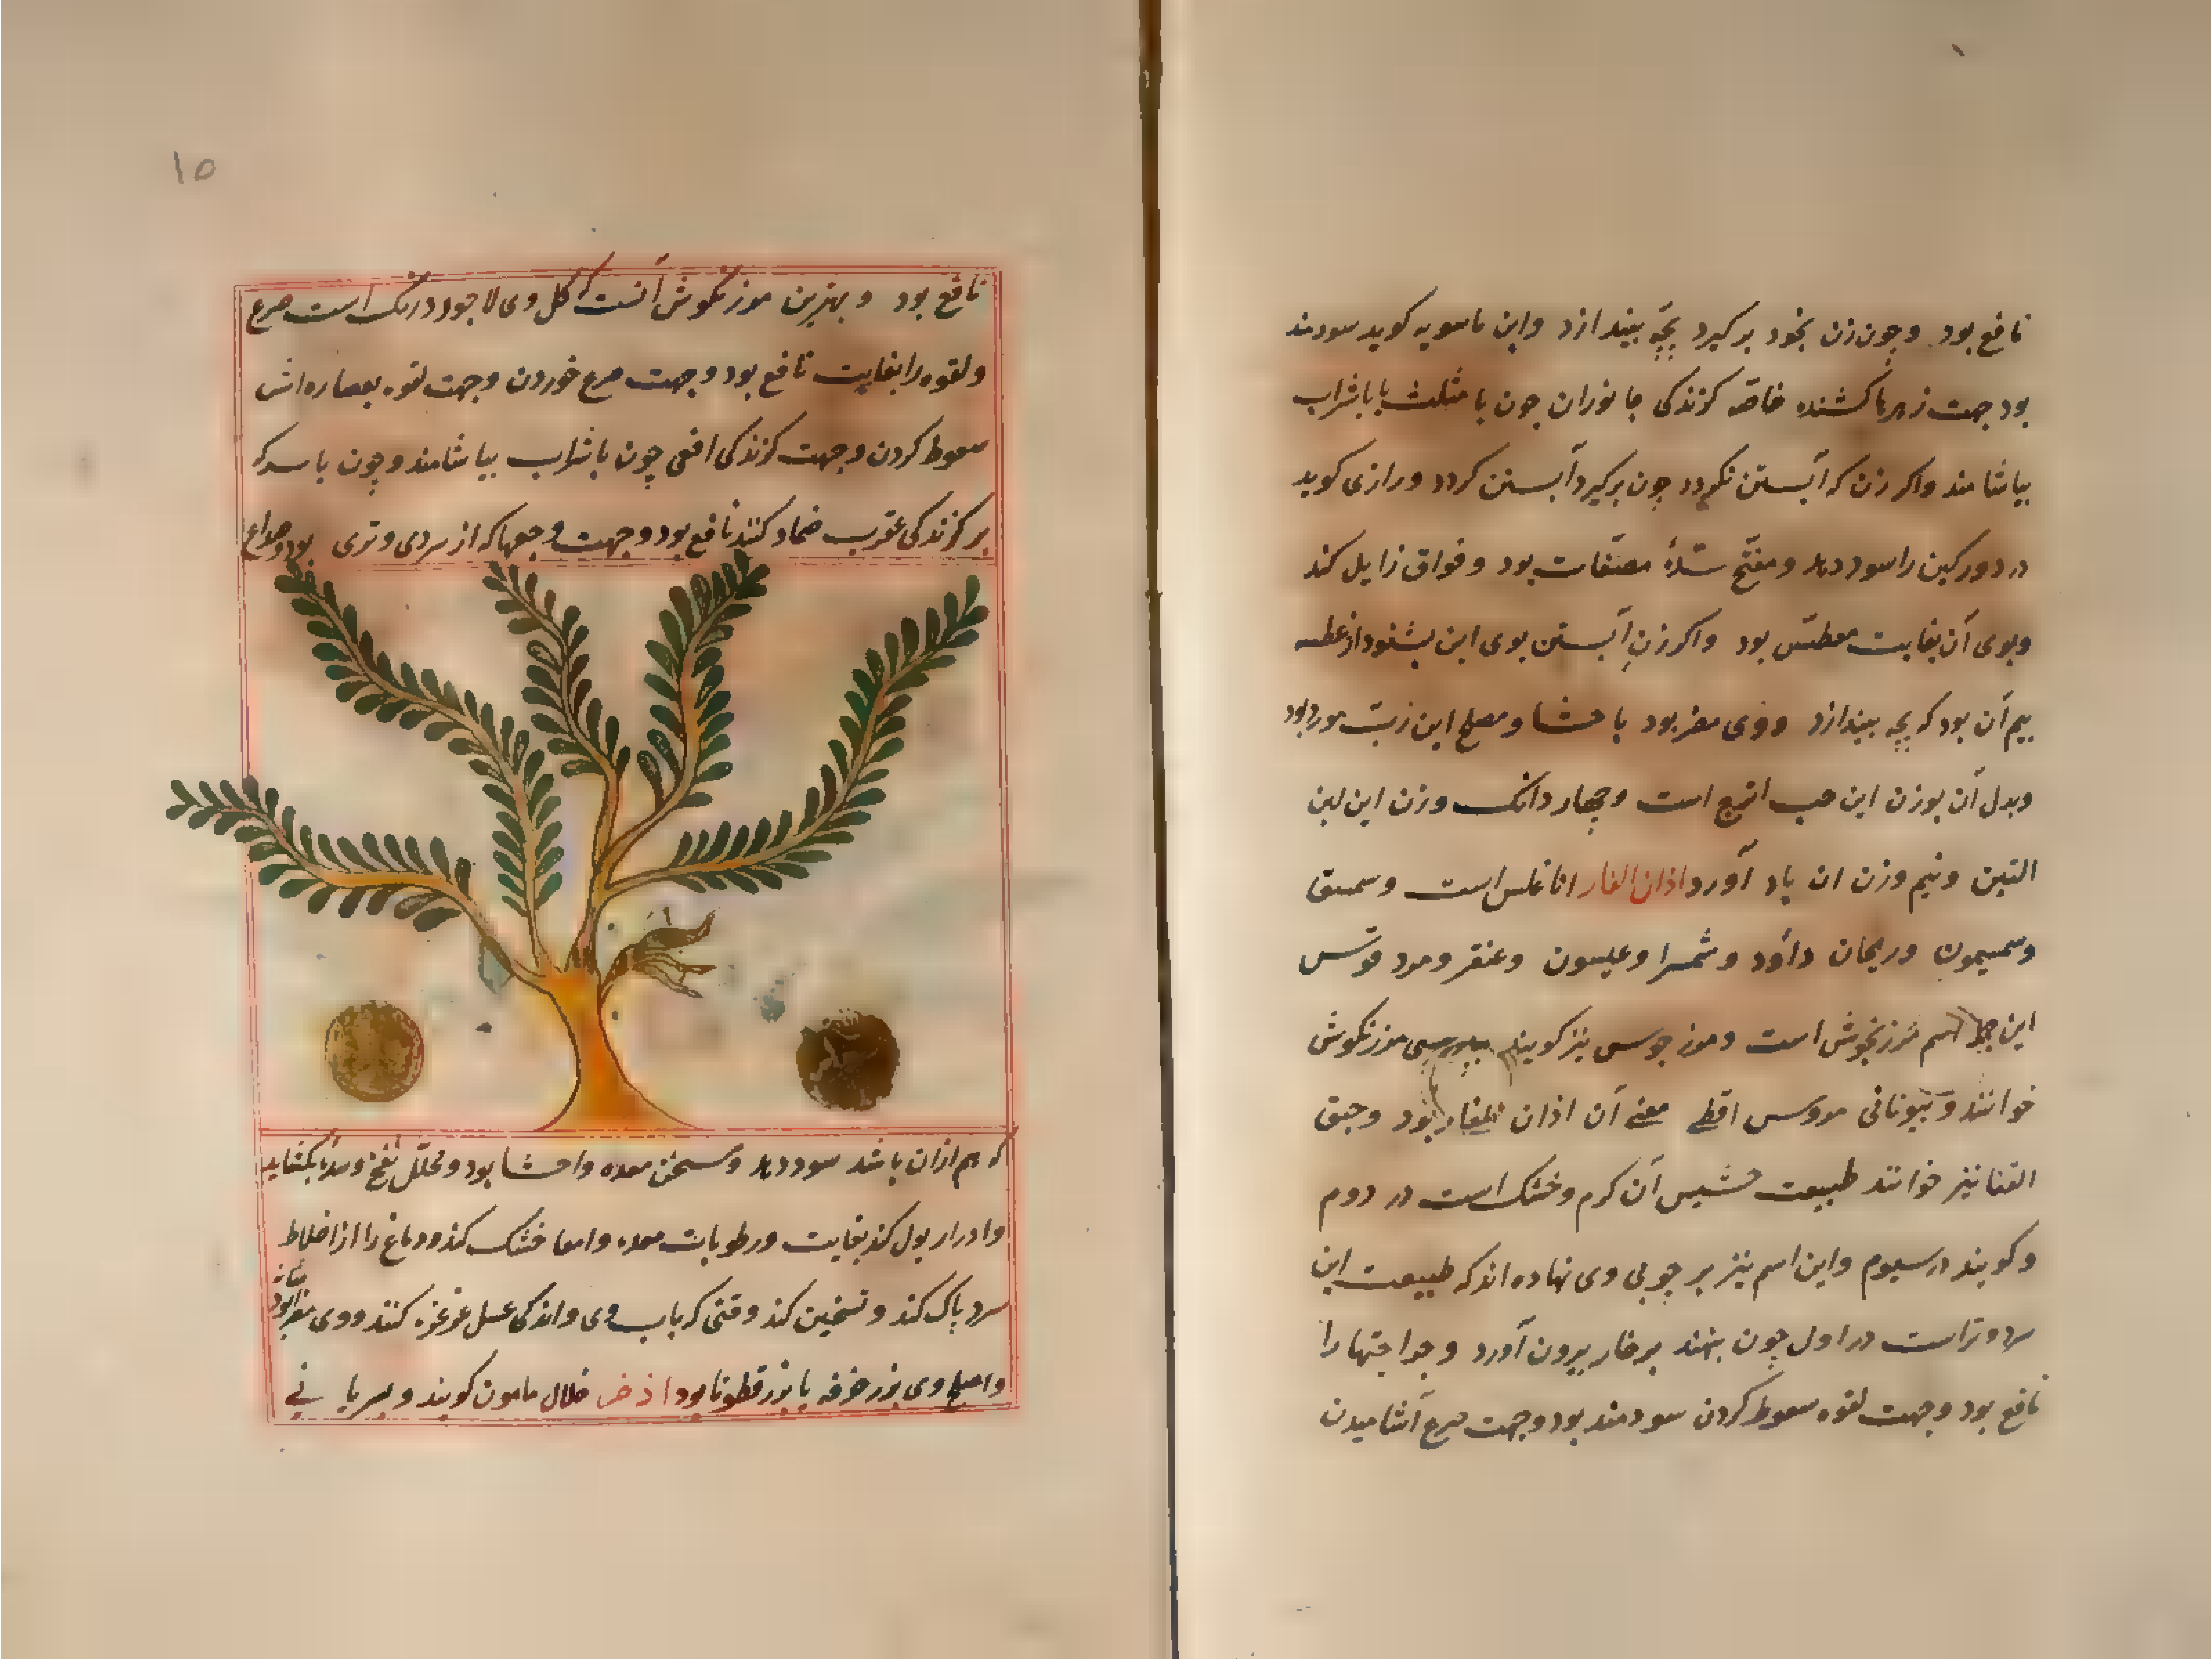 نافع بود وچون زن بخود برکیرد بچّه بیندازد وابن ماسویه کوید سودمند
بود جهت زهرها کشنده خاصّه کزندکی جانوران چون با مثلث یا باشراب
بیاشامند واکر زن که آبستن نکردد چون برکیرد آبستن کردد ورازی کوید
درد ورکین را سود دهد ومفتّح سدّهٔ مصفّات بود وفواق زایل کند
وبوی آن بغایت معطّس بود واکر زن آبستن بوی این بشنود از عطسه
بیم آن بود که بچّه بیندازد ووی مضر بود باحشا ومصلح این زیت مورد بود
وبدل آن بوزن این حب اترج است وچهار دانک وزن این لبن
التین ونیم وزن ان یاد آورد اذان الفار اناغلس است وسمسق
وسمیمون وریحان داود وشمسرا وعیسون وعنقر ومرد قوس
این اسم مرزنجوش است ومرز جوس نیز کویند مرزنکوش
خوانند وبیونانی مروس اقطی معنی آن اذان الفار بود وحبق
القنا نیز خوانند طبیعت حشیس آن کرم وخشک است در دوم
وکویند در سیوم واین اسم نیز بر چوبی وی نهاده اند که طبیعت این
سرد وتر است در اول چون بنهند بر خار بیرون آورد وجراحتها را
نافع بود وجهت لقوه سعوط کردن سودمند بود وجهت صرع آشامیدن
۱۵
نافع بود وبهترین مرزنکوش آنست که کل وی لاجورد رنک است صرع
ولقوه را بغایت نافع بود وجهت صرع خوردن وجهت لقوه بعصاره اش
سعوط کردن وجهت کزندکی افعی چون باشراب بیاشامند وچون باسرکه
بر کزندکی عقرب ضماد کنند نافع بود وجهت وجعها که از سردی وتری بود وصداع
که هم ازان باشد سود دهد ومسخن معده واحشا بود ومحلّل نفخ وسدّه بکشاید
وادرار بول کند بغایت ورطوبات معده وامعا خشک کند ودماغ را از اخلاط
سرد پاک کند وتسخین کند وقتی که باب وی واندکی عسل غرغره کنند ووی مضر بود بمثانه
واصلاح وی بزر خرفه یا بزر قطونا بود اذخر خلال مامون کویند وبسریانی